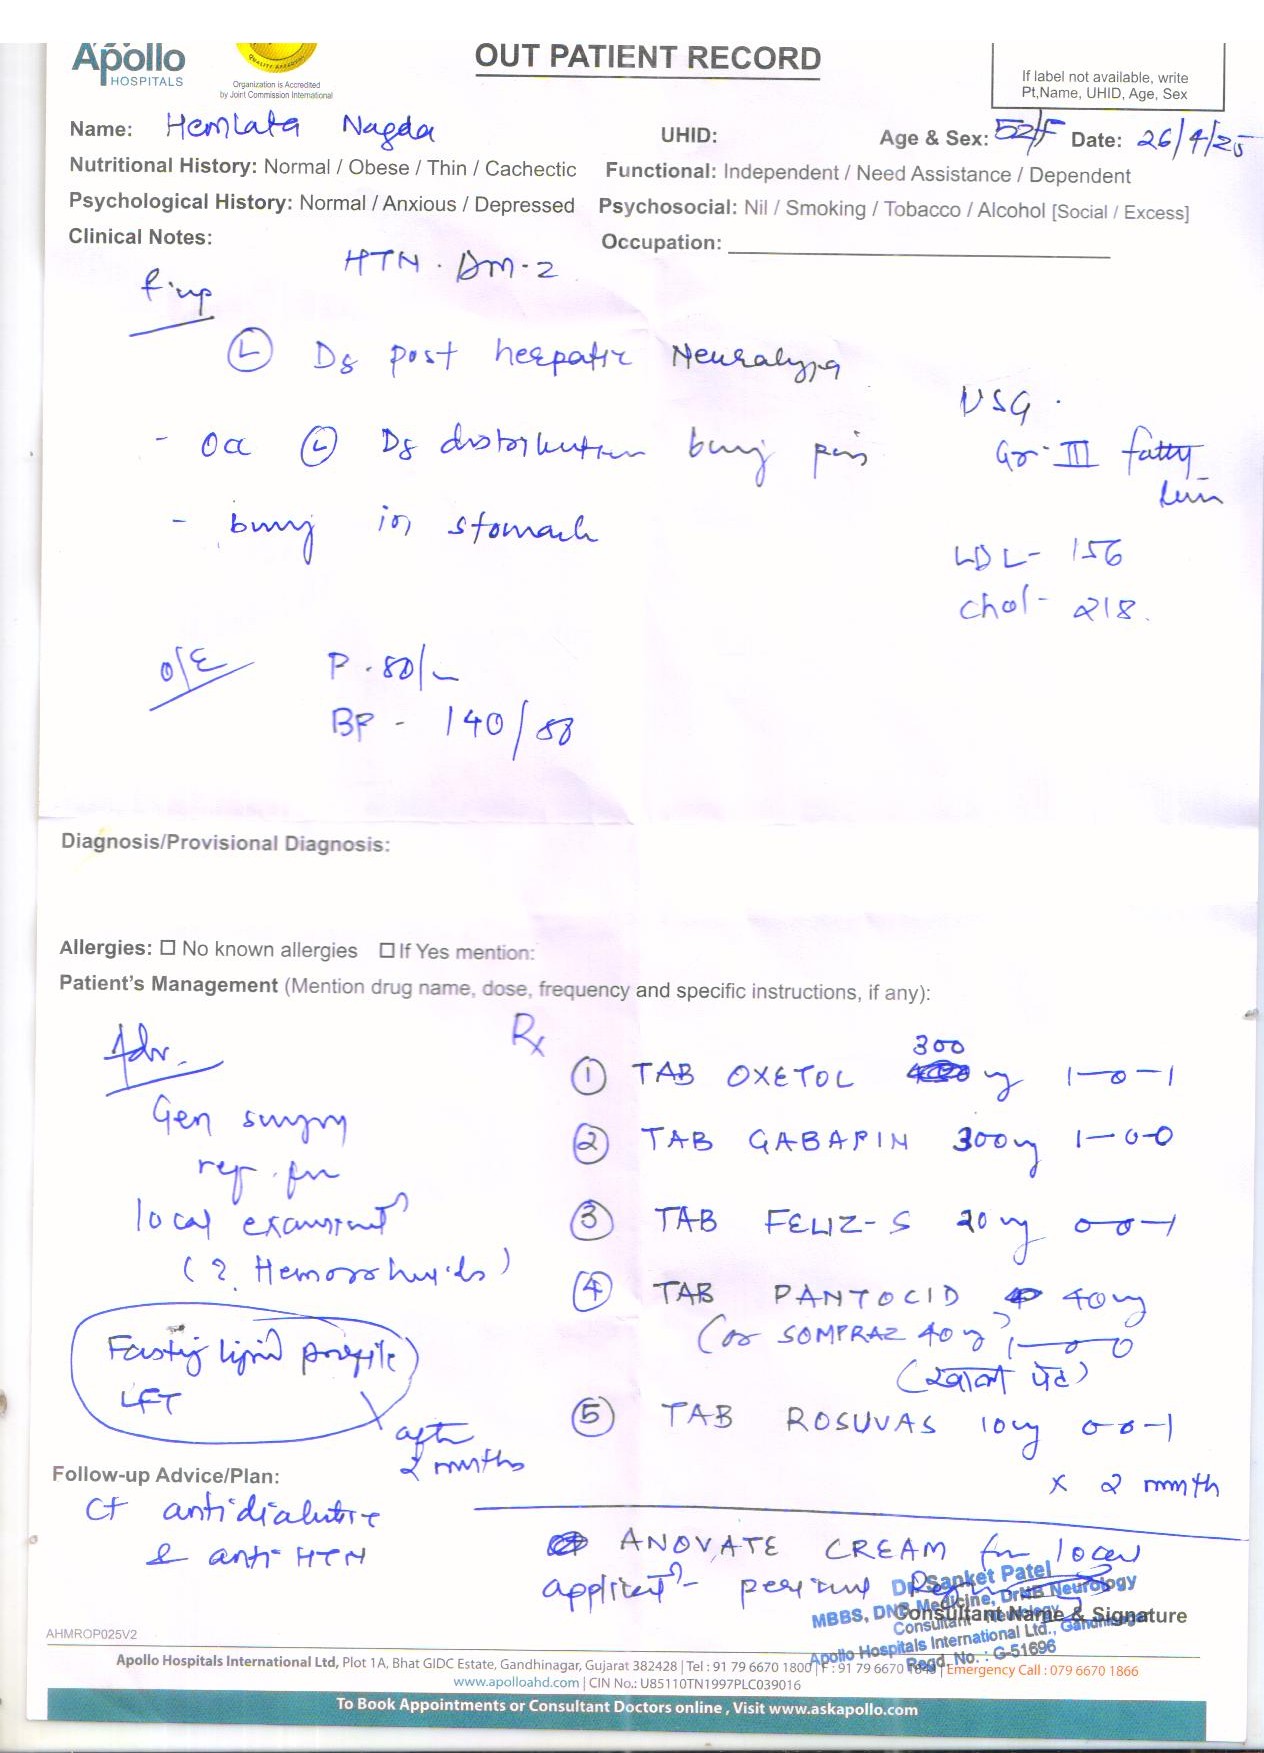 Apollo
HOSPITALS
Organization is Accredited
by Joint Commission International
OUT PATIENT RECORD
If label not available, write
Pt,Name, UHID, Age, Sex
Name: Hemlata Nagda UHID: Age & Sex: 52/F Date: 26/4/25
Nutritional History: Normal / Obese / Thin / Cachectic Functional: Independent / Need Assistance / Dependent
Psychological History: Normal / Anxious / Depressed Psychosocial: Nil / Smoking / Tobacco / Alcohol [Social / Excess]
Clinical Notes: Occupation:
HTN . DM-2
f.up
(L) D8 post herpatic Neuralgia
USG .
- occ (L) D8 distribution burnig pain
Gr-III fatty
liver
- burnig in stomach
LDL- 156
Chol- 218.
O/E P - 80/
BP - 140/88
Diagnosis/Provisional Diagnosis:
Allergies: ☐ No known allergies ☐ If Yes mention:
Patient's Management (Mention drug name, dose, frequency and specific instructions, if any):
Adv. Rx
300
① TAB OXETOL mg 1-0-1
Gen surgery
② TAB GABAPIN 300mg 1-0-0
ref. for
local examinatn
③ TAB FELIZ-S 20mg 0-0-1
(? Hemorrhoids)
④ TAB PANTOCID 40mg
(or SOMPRAZ 40mg) 1-0-0
Fasting lipid profile
(खाली पेट)
LFT
⑤ TAB ROSUVAS 10mg 0-0-1
after
2 months
x 2 month
Follow-up Advice/Plan:
Ct antidiabetic
& anti HTN
ANOVATE CREAM for local
applicatn - perianal Region
Dr. Sanket Patel
MBBS, DNB Medicine, DrNB Neurology
Consultant - Neurology
Consultant Name & Signature
Apollo Hospitals International Ltd., Gandhinagar
Regd. No. : G-51696
AHMROP025V2
Apollo Hospitals International Ltd, Plot 1A, Bhat GIDC Estate, Gandhinagar, Gujarat 382428 | Tel : 91 79 6670 1800 | F : 91 79 6670 | Emergency Call : 079 6670 1866
www.apolloahd.com | CIN No.: U85110TN1997PLC039016
To Book Appointments or Consultant Doctors online , Visit www.askapollo.com